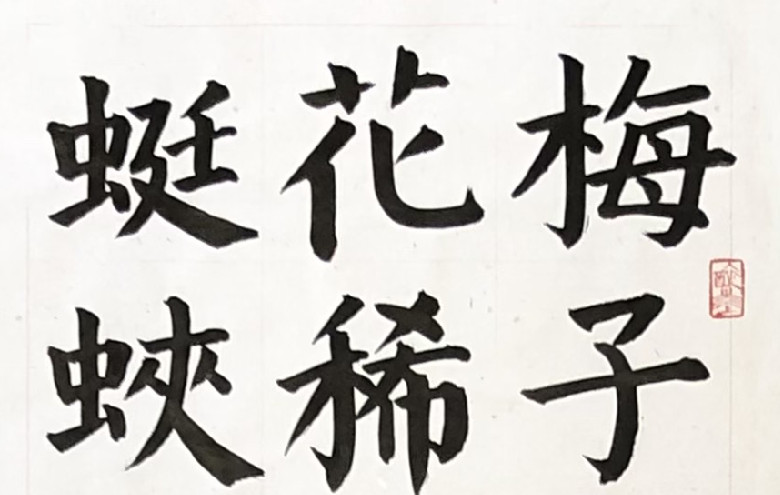 梅子
花稀
蜓蛺